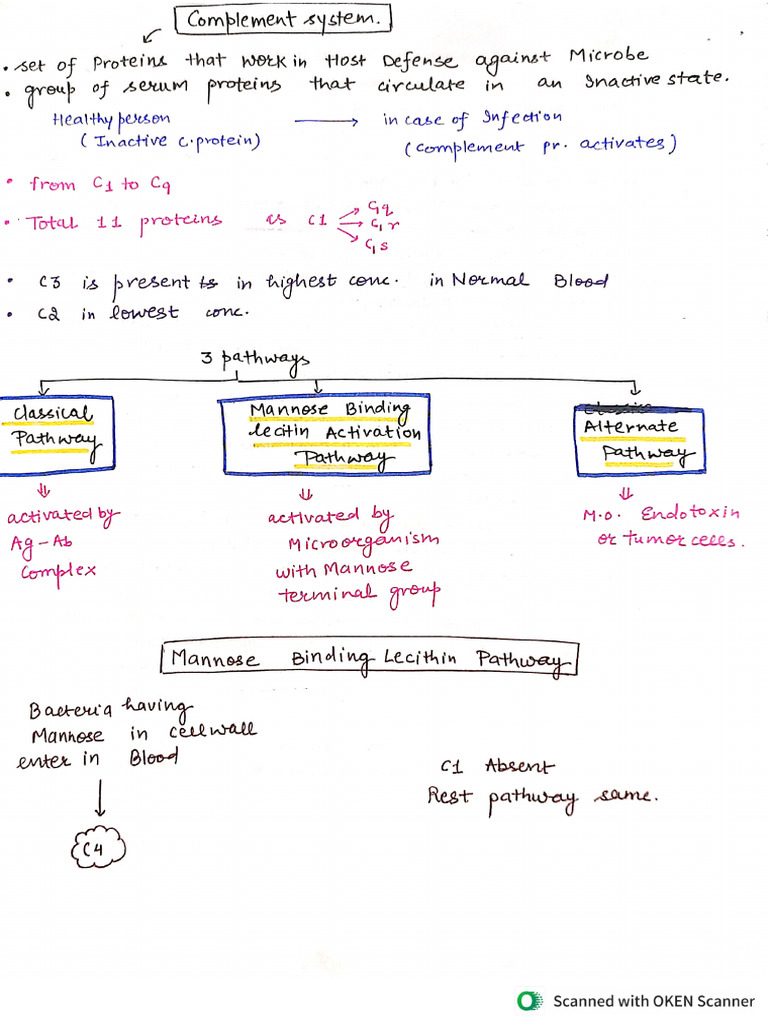 Complement system.
• set of Proteins that work in Host Defense against Microbe
• group of serum proteins that circulate in an Inactive state.
Healthy person → in case of Infection
(Inactive c.protein) (complement pr. activates)
• from C1 to C9
• Total 11 proteins as C1 → C1q
C1r
C1s
• C3 is present is in highest conc. in Normal Blood
• C2 in lowest conc.
3 pathways
Classical Pathway
Mannose Binding
lecitin Activation
Pathway
Alternate
Pathway
activated by
Ag-Ab
complex
activated by
Microorganism
with Mannose
terminal group
M.O. Endotoxin
or tumor cells.
Mannose Binding Lecithin Pathway
Bacteria having
Mannose in cellwall
enter in Blood
C4
C1 Absent
Rest pathway same.
Scanned with OKEN Scanner